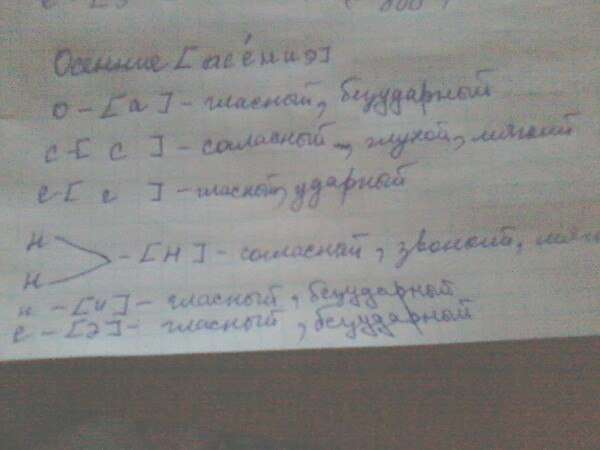 Осенние [асéниэ]
о - [а] - гласный, безударный
с [ с ] - согласный, глухой, мягкий
е [ е ] - гласный, ударный
н
н - [н] - согласный, звонкий,
и - [и] - гласный, безударный
е - [э] - гласный, безударный